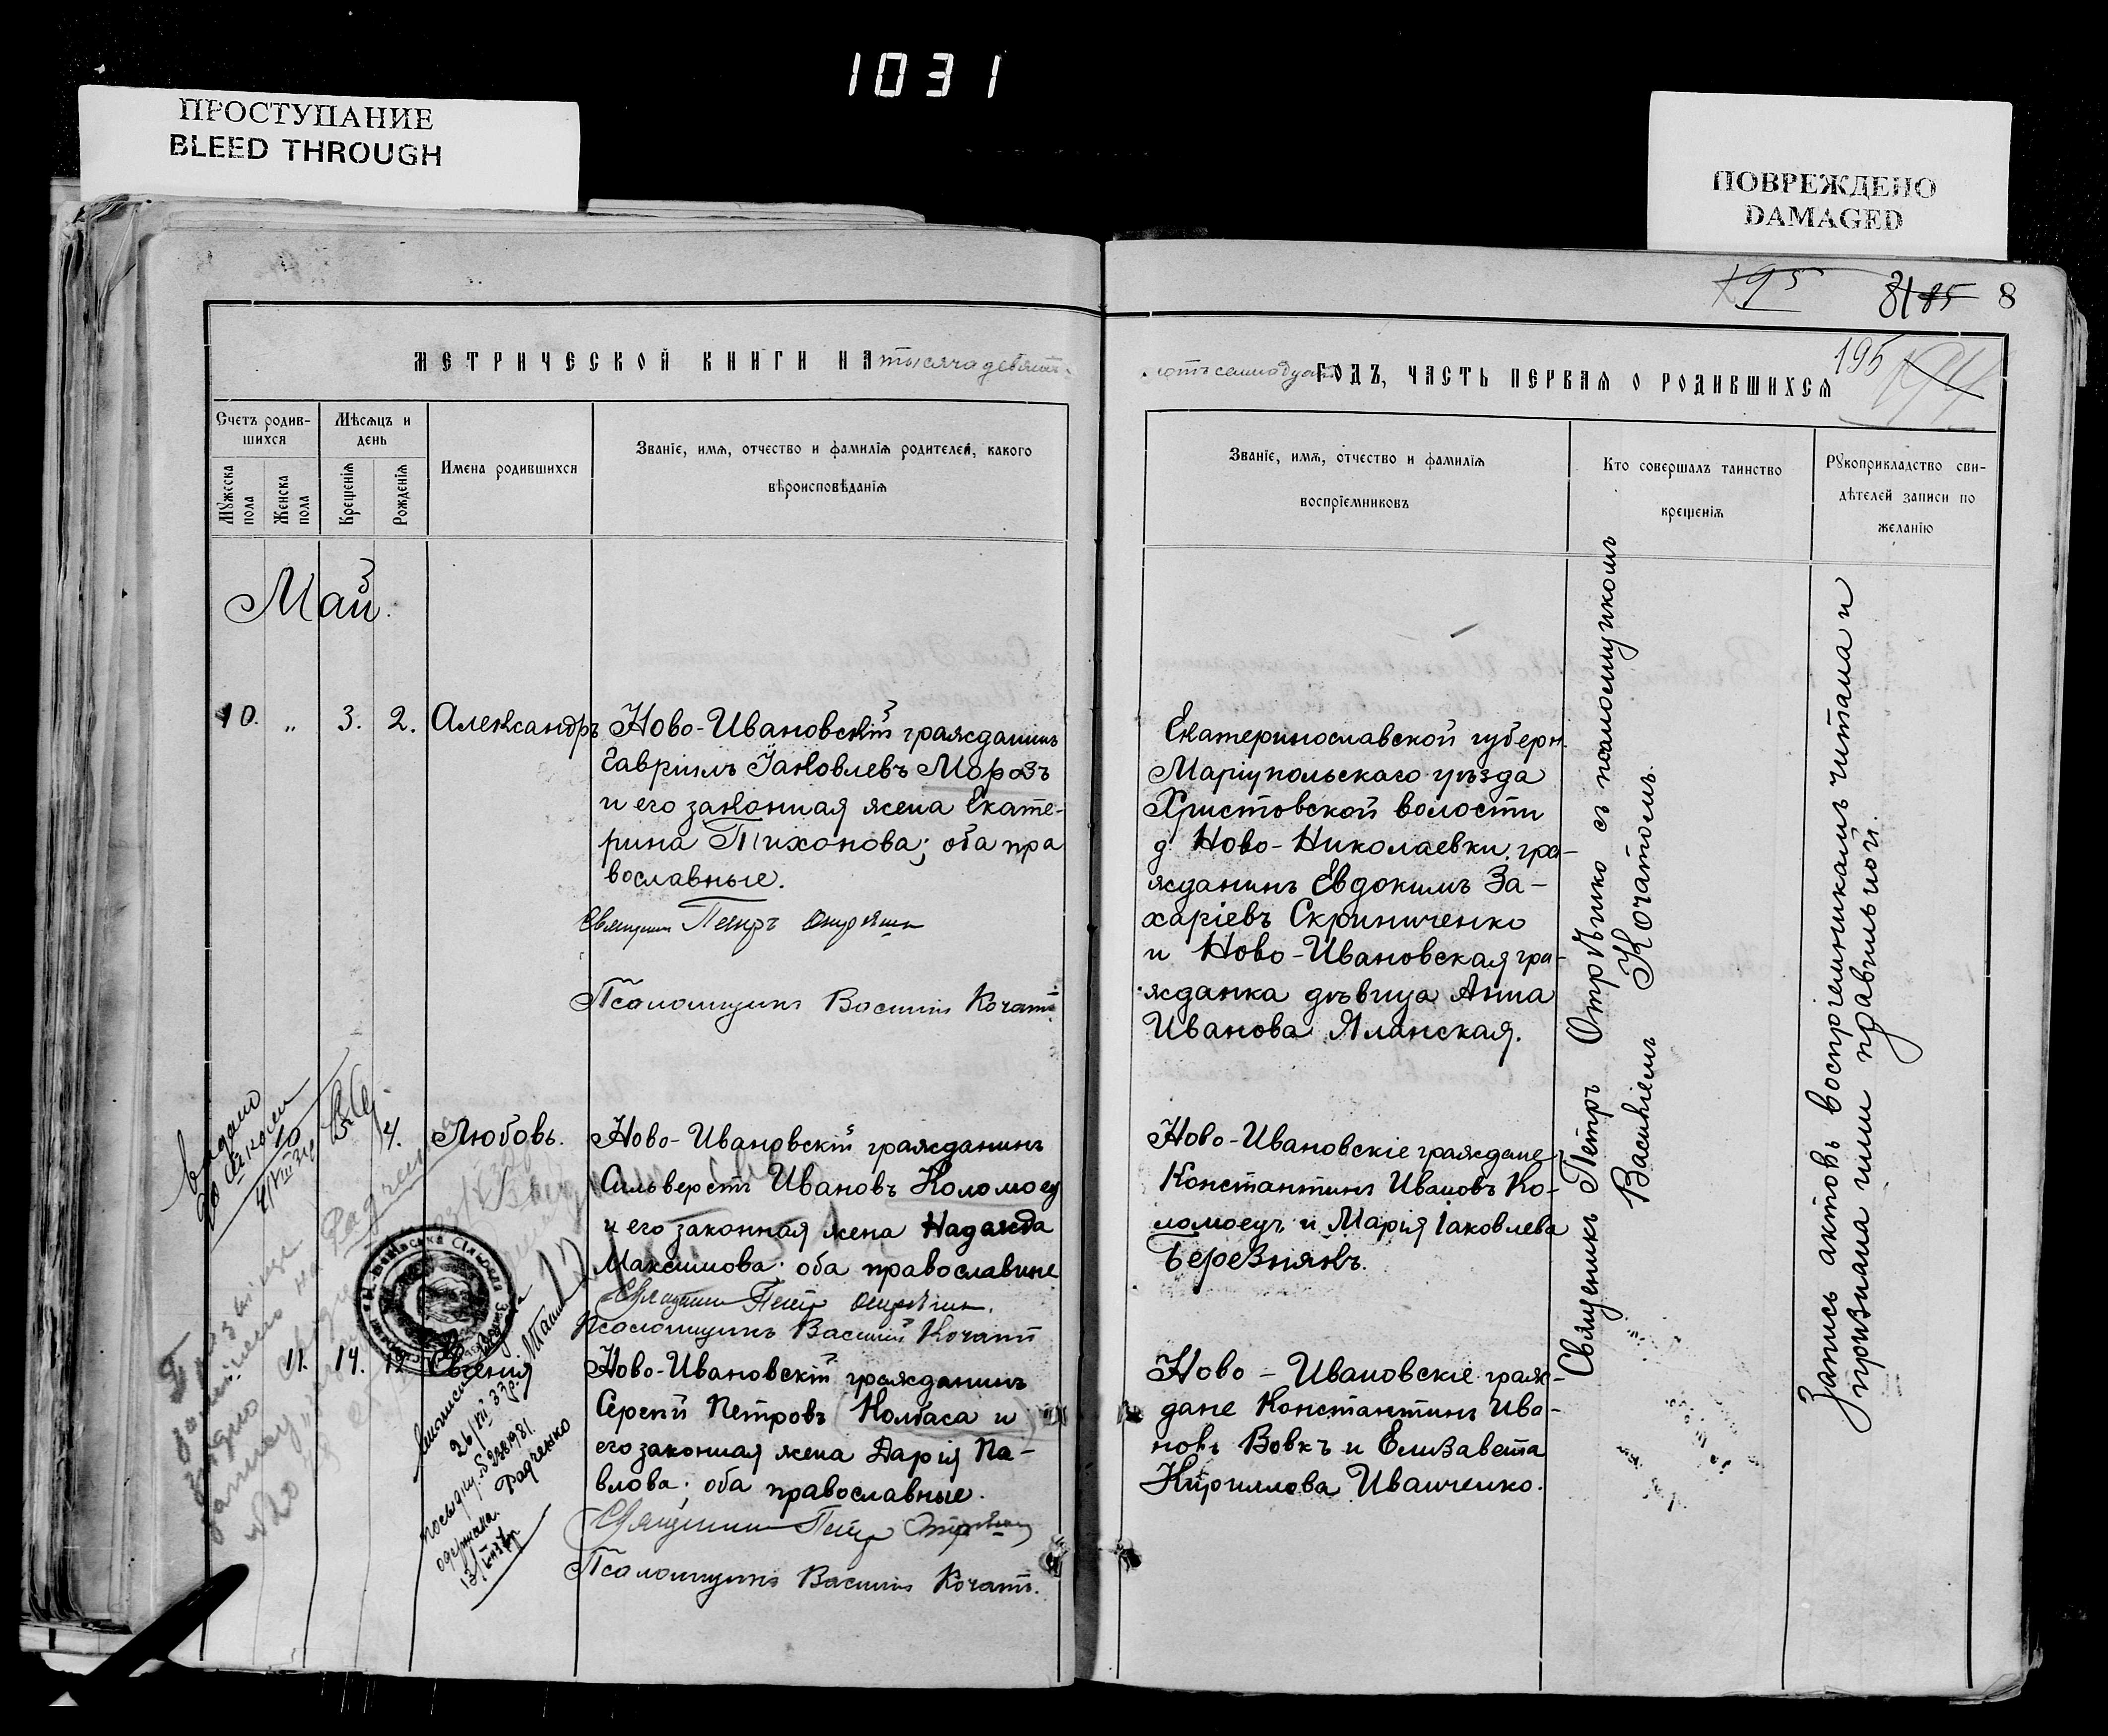 1031
ПРОСТУПАНИЕ
BLEED THROUGH
ПОВРЕЖДЕНО
DAMAGED
195
85
8
195
МЕТРИЧЕСКОЙ КНИГИ НА тысяча девять-
сотъ семнадца ГОДЪ, ЧАСТЬ ПЕРВАЯ О РОДИВШИХСЯ
Счетъ родив-
шихся
Мужеска
пола
Женска
пола
Мѣсяцъ и
день
Крещенія
Рожденія
Имена родившихся
Званіе, имя, отчество и фамилія родителей, какого
вѣроисповѣданія
Званіе, имя, отчество и фамилія
воспріемниковъ
Кто совершалъ таинство
крещенія
Рукоприкладство сви-
дѣтелей записи по
желанію
Май.
10.
„
3.
2.
Александръ
Ново-Ивановскій гражданинъ
Гавріилъ Іаковлевъ Морозъ
и его законная жена Екате-
рина Тихонова; оба пра
вославные.
Священникъ Петръ Отрѣшко
Псаломщикъ Василій Кочатъ
Екатеринославской губерн.
Маріупольскаго уѣзда
Христовской волости
д Ново-Николаевки, гра-
жданинъ Евдокимъ За-
харіевъ Скриниченко
и Ново-Ивановская гра-
жданка дѣвица Анна
Иванова Яланская.
4.
Любовь.
Ново-Ивановскій гражданинъ
Сильверстъ Ивановъ Коломоец
и его законная жена Надежда
Максимова; оба православные
Священникъ Петръ Отрѣшко.
Псаломщикъ Василій Кочатъ
Ново-Ивановскіе граждане
Константинъ Ивановъ Ко-
ломоецъ и Марія Іаковлева
Березнякъ.
11.
14.
Евгенія
Ново-Ивановскій гражданинъ
Сергій Петровъ Колбаса и
его законная жена Дарія Па-
влова; оба православные.
Священникъ Петръ Отрѣшко
Псаломщикъ Василій Кочатъ.
Ново-Ивановскіе граж-
дане Константинъ Ива-
новъ Вовкъ и Елизавета
Кириллова Иванченко.
Священникъ Петръ Отрѣшко съ псаломщикомъ
Василіемъ Кочатомъ.
Запись актовъ воспріемникамъ читана и
признана ими правильной.
видано
до школи
26/VII 33р.
посвідку
одержала.
Радченко